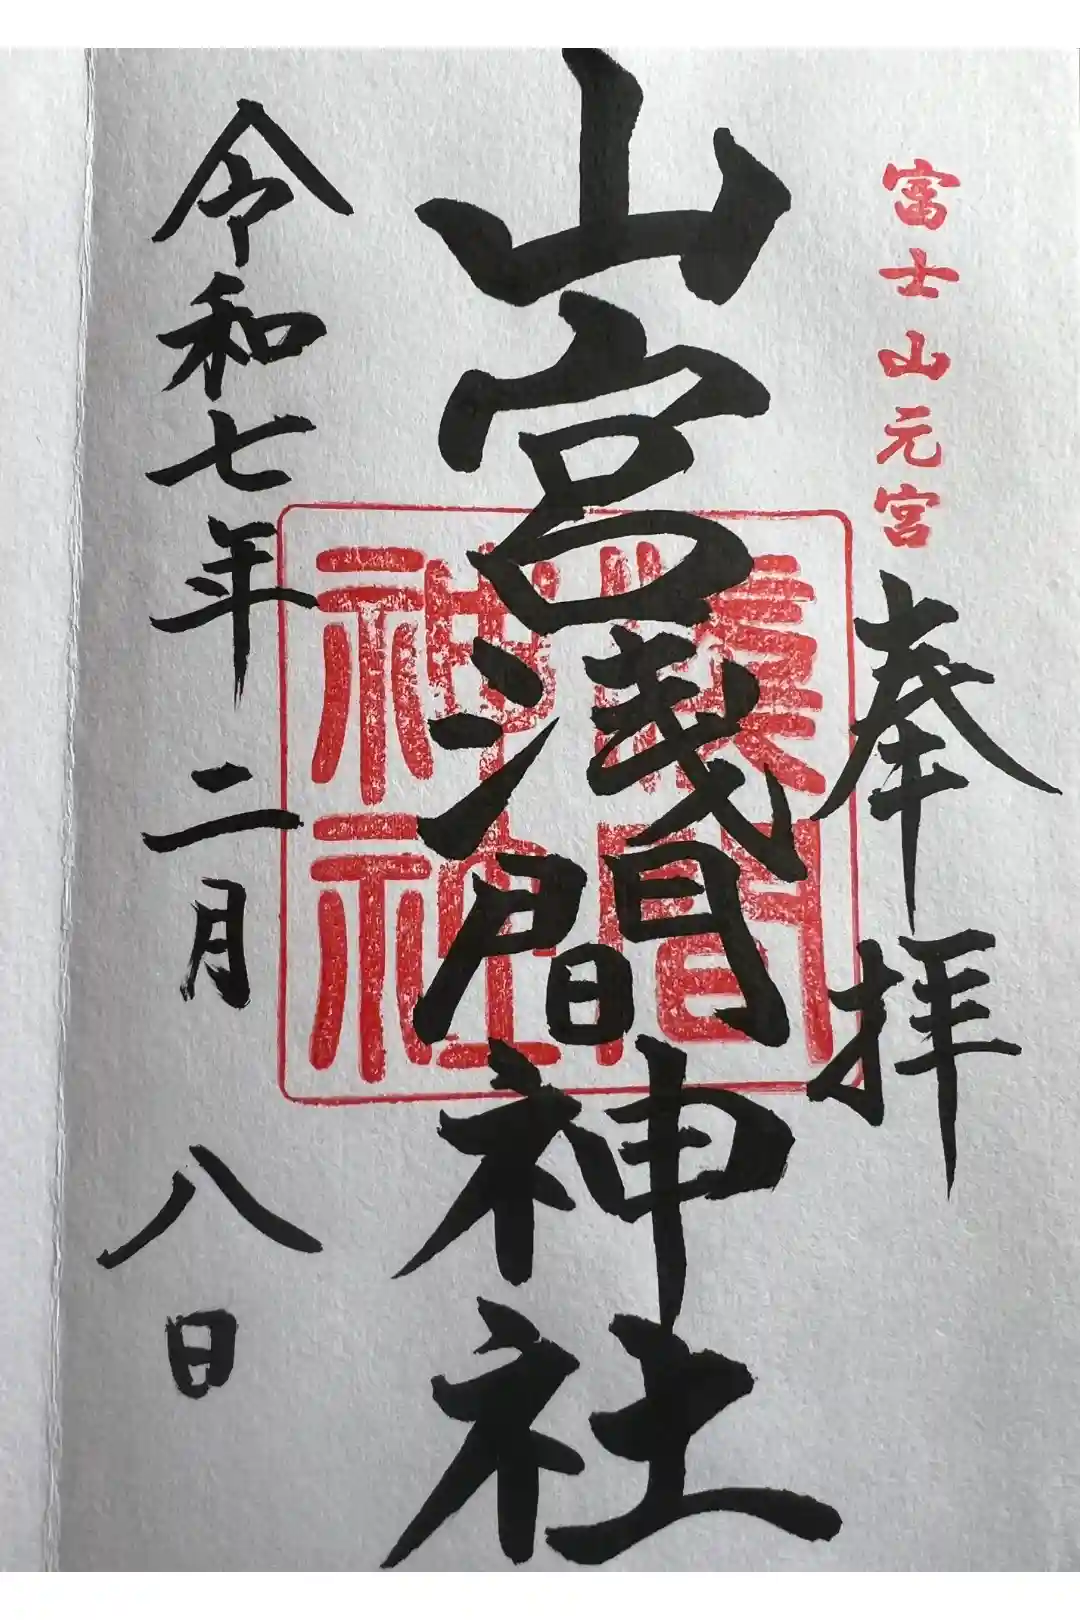 富士山元宮
奉拝
山宮浅間神社
浅間
神社
令和七年二月八日